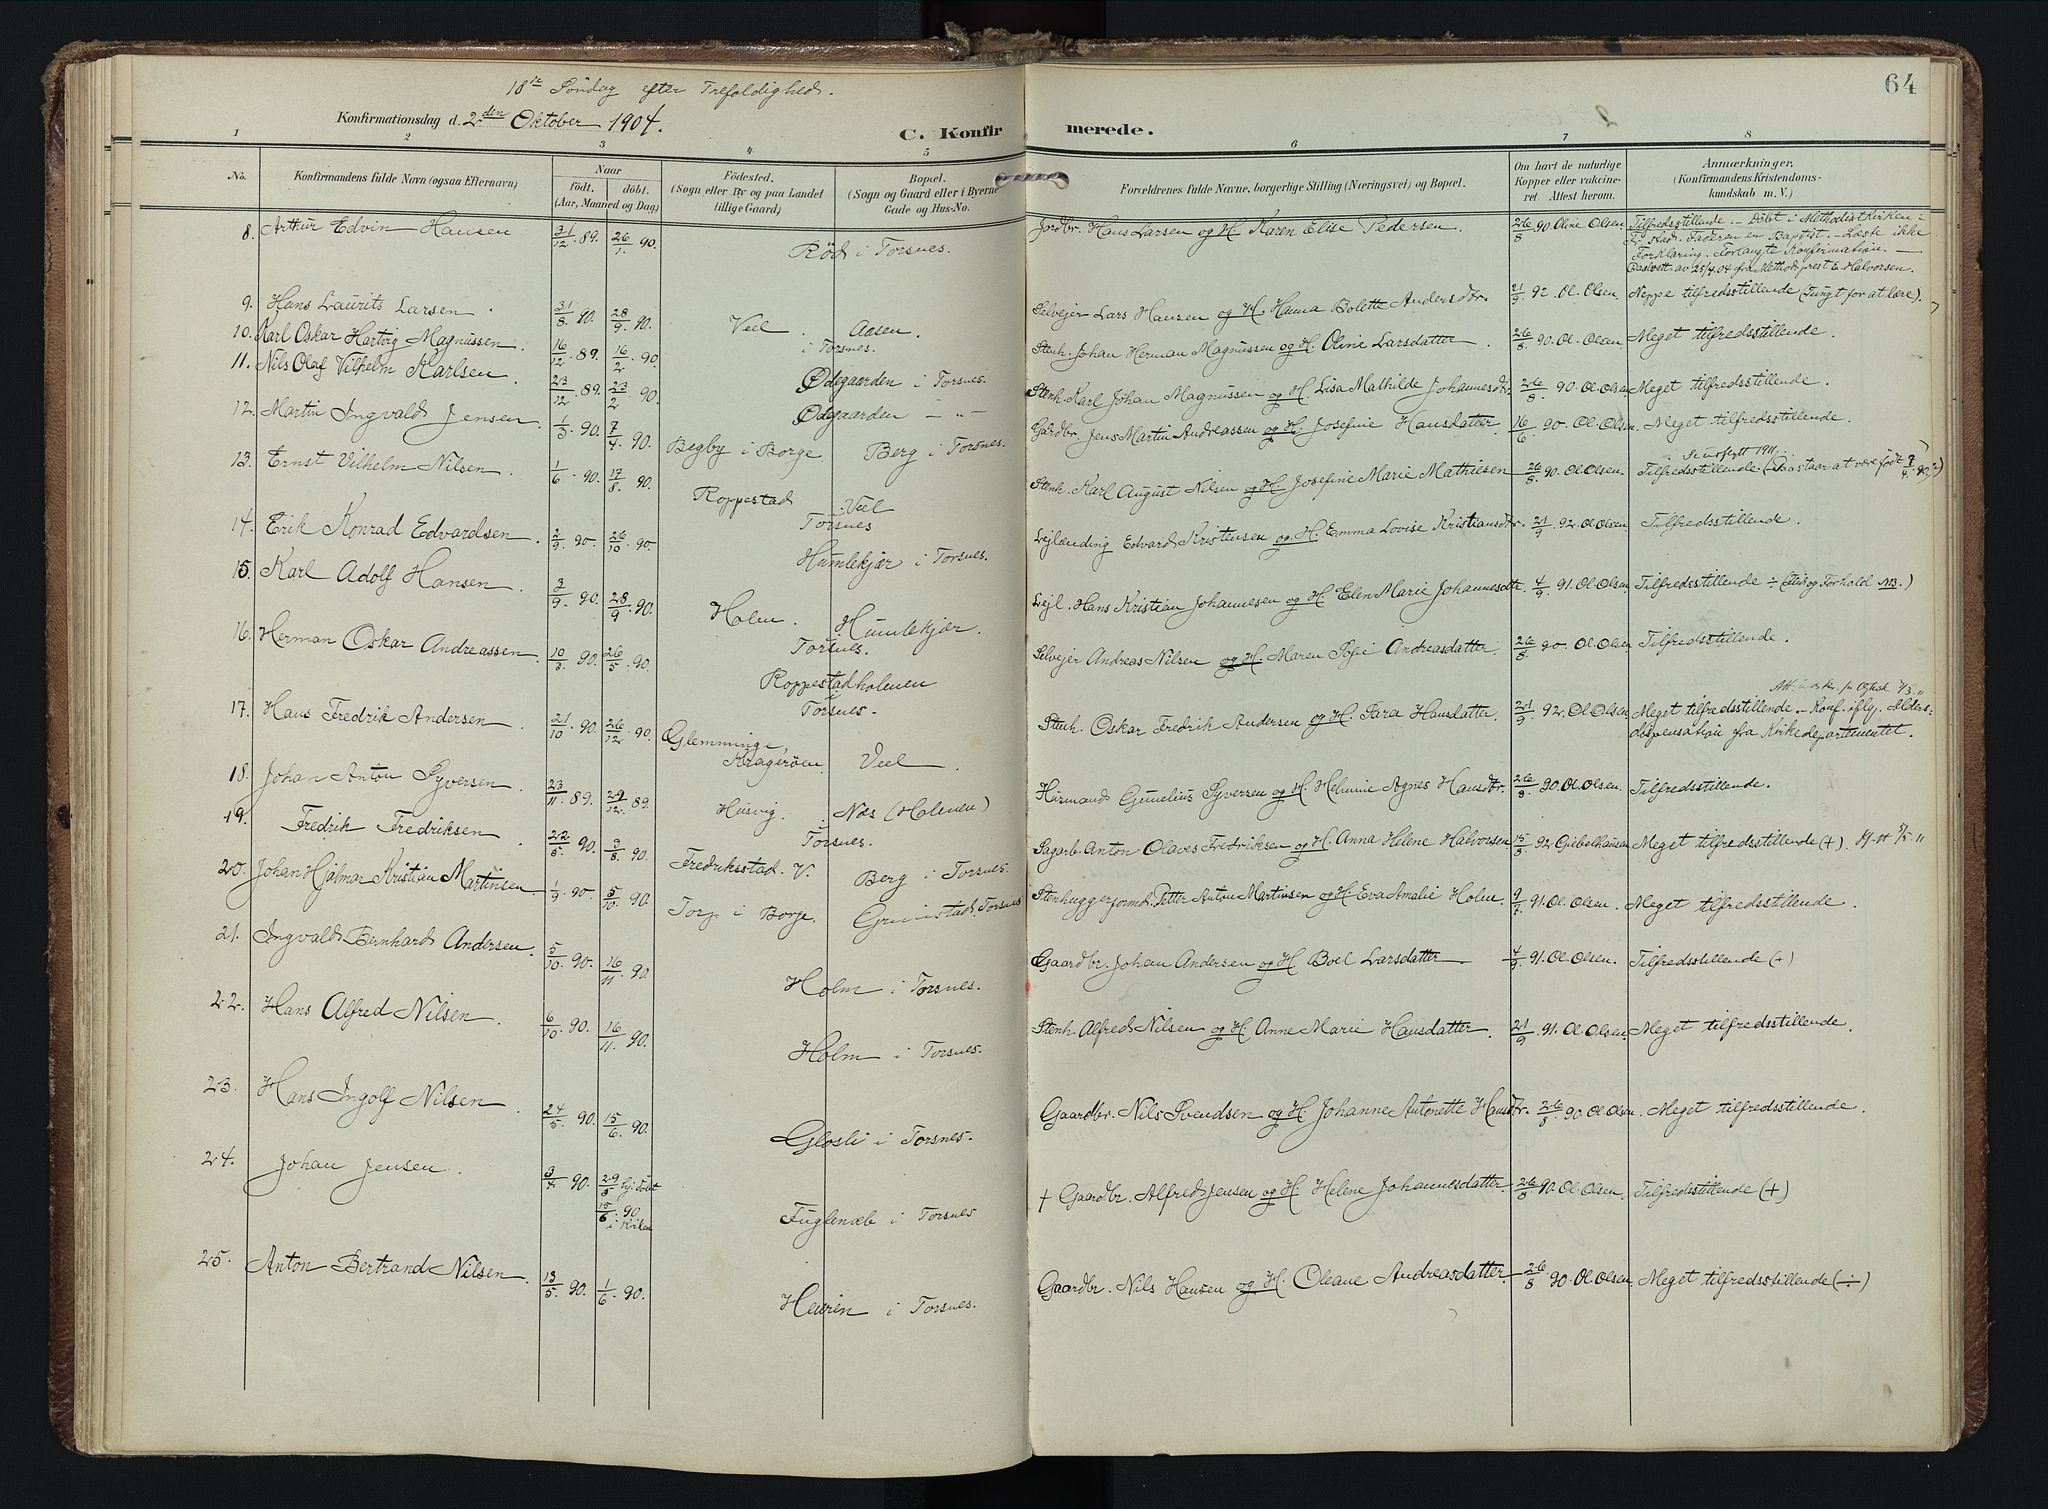 64
18de Söndag efter Trefoldighed.
Konfirmationsdag d. 2den Oktober 1904.
C. Konfirmerede.
1 2 3 4 5 6 7 8
No.
Konfirmandens fulde Navn (ogsaa Efternavn)
Naar
født. døbt.
(Aar, Maaned og Dag)
Fødested.
(Sogn eller By og paa Landet
tillige Gaard)
Bopæl.
(Sogn og Gaard eller i Byerne
Gade og Hus-No.
Forældrenes fulde Navne, borgerlige Stilling (Næringsvei) og Bopæl.
Om havt de naturlige
Kopper eller vakcine-
ret Attest herom.
Anmærkninger.
(Konfirmandens Kristendoms-
kundskab m. V.)
8. Arthur Edvin Hansen 31/12 89. 26/1 90. Röd i Torsnes. Jordbr. Hans Larsen og H. Karen Elise Pedersen. 26/8 90 Oline Olsen Tilfredsstillende. – Döbt i Methodistkirken i
Fr.stad. Faderen er Baptist. – Læste ikke
Forklaring. Forlangte Konfirmation. –
av 25/4 04 fra Methodprest E. Halvorsen.
9. Hans Laurits Larsen. 31/8 90. 28/9 90. Veel. Aasen. i Torsnes. Selvejer Lars Hansen og H. Hanna Bolette Andersdtr. 21/9 92. Ol. Olsen. Neppe tilfredsstillende (Tungt for at lære).
10. Karl Oskar Hartvig Magnussen. 16/12 89. 16/2 90. Ødegaarden i Torsnes. Stenh. Johan Herman Magnussen og H. Oline Larsdatter. 26/8 90. Ol. Olsen. Meget tilfredsstillende.
11. Nils Olaf Vilhelm Karlsen. 23/12 89. 23/2 90. Ødegaarden – " – Stenh. Karl Johan Magnussen og H. Lisa Mathilde Johannesdtr. 26/8 90 Ol. Olsen Meget tilfredsstillende.
12. Martin Ingvald Jensen. 1/3 90. 7/4 90. Begby i Borge. Berg i Torsnes. Gårdbr. Jens Martin Andreassen og H. Josefine Hansdatter. 16/6 90. Ol. Olsen. Meget tilfredsstillende.
13. Ernst Vilhelm Nilsen. 1/6 90. 17/8 90. Roppestad Veel Torsnes Stenh. Karl August Nilsen og H. Josefine Marie Mathiesen 26/8 90. Ol. Olsen. Tilfredsstillende. (Paastaar at være født 7/4 90.)
14. Erik Konrad Edvardsen. 2/9 90. 26/10 90. Humlekjær i Torsnes. Lejlænding Edvard Kristensen og H. Emma Lovise Kristiansdtr. 21/9 92. Ol. Olsen Tilfredsstillende.
15. Karl Adolf Hansen. 3/9 90. 28/9 90. Holm. Humlekjær. Torsnes. Lejl. Hans Kristian Johannesen og H. Elen Marie Johannesdtr. 4/9 91. Ol. Olsen Tilfredsstillende ÷ (Flid og Forhold NB.)
16. Herman Oskar Andreassen. 10/3 90. 26/5 90. Roppestadholmen Torsnes. Selvejer Andreas Nilsen og H. Maren Sofie Andreasdatter. 26/8 90. Ol. Olsen Tilfredsstillende.
17. Hans Fredrik Andersen. 21/10 90. 26/12 90. Glemminge, Kragerøen. Veel. Stenh. Oskar Fredrik Andersen og H. Sara Hansdatter. 21/9 92. Ol. Olsen. Meget tilfredsstillende. – Konf. iflg. Alders-
dispensation fra Kirkedepartementet.
18. Johan Anton Syversen. 23/11 89. 29/12 89. Husvig. Næs (Holmen) Torsnes. Husmand Gunelius Syversen og H. Helmine Agnes Hansdtr. 26/8 90. Ol. Olsen. Tilfredsstillende.
19. Fredrik Fredriksen. 22/5 90. 3/8 90. Fredriksstad. V. Berg i Torsnes. Sagarb. Anton Olaves Fredriksen og H. Anna Helene Halvorsen 15/8 92. Giebelhausen Meget tilfredsstillende (+).
20. Johan Hjalmar Kristian Martinsen. 1/9 90. 5/10 90. Torp i Borge. Grimstad. Torsnes Stenhuggerformd. Petter Anton Martinsen og H. Eva Amalie Holm. 9/7 91. Ol. Olsen. Meget tilfredsstillende.
21. Ingvald Bernhard Andersen. 5/10 90. 16/11 90. Holm i Torsnes. Gaardbr. Johan Andersen og H. Boel Larsdatter 4/9 91. Ol. Olsen. Tilfredsstillende (+)
22. Hans Alfred Nilsen. 6/10 90. 16/11 90. Holm i Torsnes. Stenh. Alfred Nilsen og H. Anne Marie Hansdatter. 21/9 91. Ol. Olsen Meget tilfredsstillende.
23. Hans Ingolf Nilsen. 24/5 90. 15/6 90. Glosli i Torsnes. Gaardbr. Nils Svendsen og H. Johanne Antonette Hansdtr. 26/8 90 Ol. Olsen. Meget tilfredsstillende.
24. Johan Jensen. 3/4 90. 29/5 hj. döbt
15/6 90 i Kirken Fuglenæb i Torsnes † Gaardbr. Alfred Jensen og H. Helene Johannesdatter. 26/8 90. Ol. Olsen. Tilfredsstillende (+)
25. Anton Bertrand Nilsen. 13/5 90. 1/6 90. Heuren i Torsnes. Gaardbr. Nils Hansen og H. Oleane Andreasdatter. 26/8 90. Ol. Olsen. Meget tilfredsstillende (÷)